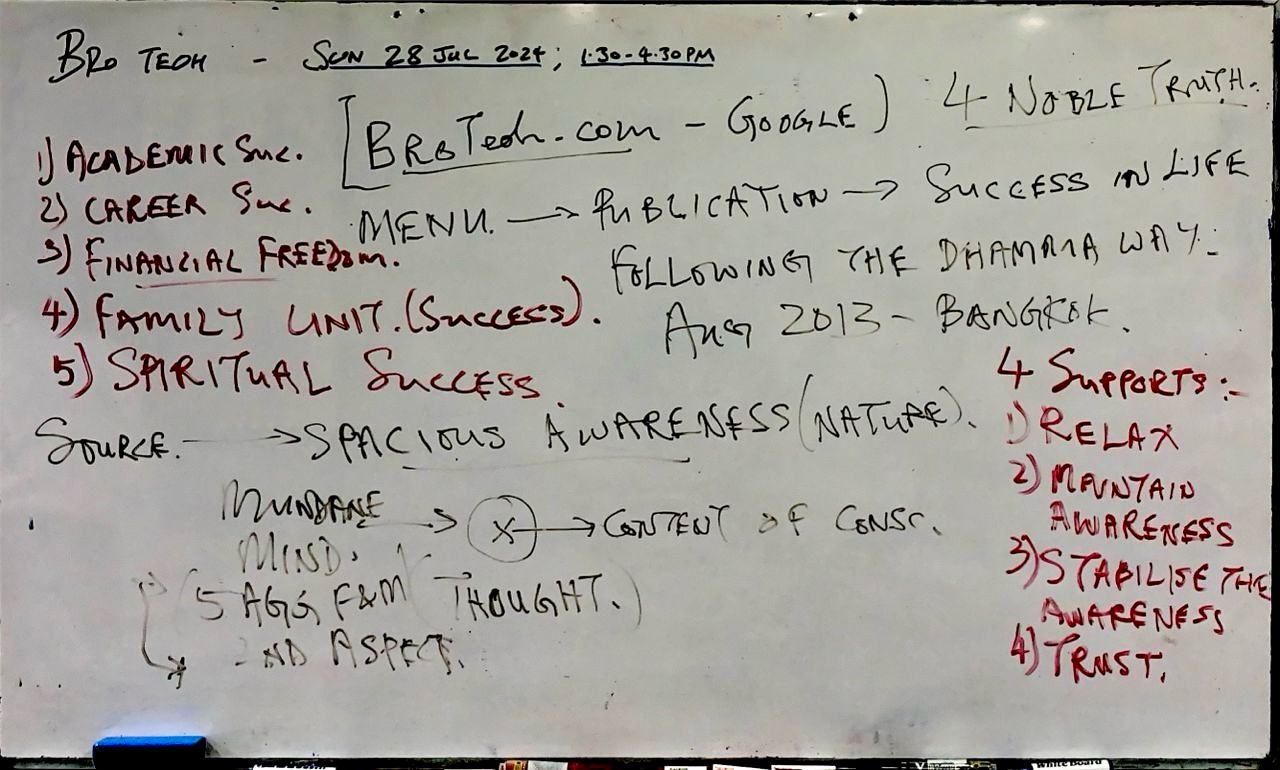 BRO TEOH - SUN 28 JUL 2024; 1.30-4.30PM
[BROTeoh.com - GOOGLE)
4 NOBLE TRUTH.
1) ACADEMIC Suc.
2) CAREER Suc.
3) FINANCIAL FREEDom.
4) FAMILY UNIT. (Success).
5) SPIRITUAL SUCCESS.
MENU. → PUBLICATION → SUCCESS IN LIFE
FOLLOWING THE DHAMMA WAY.
AUG 2013 - BANGKOK.
SOURCE. → SPACIOUS AWARENESS (NATURE).
MUNDANE → X → CONTENT OF CONSC.
MIND.
(5 AGG F&M (THOUGHT.)
2ND ASPECT.
4 SUPPORTS:-
1) RELAX
2) MAINTAIN
AWARENESS
3) STABILISE THE
AWARENESS
4) TRUST.